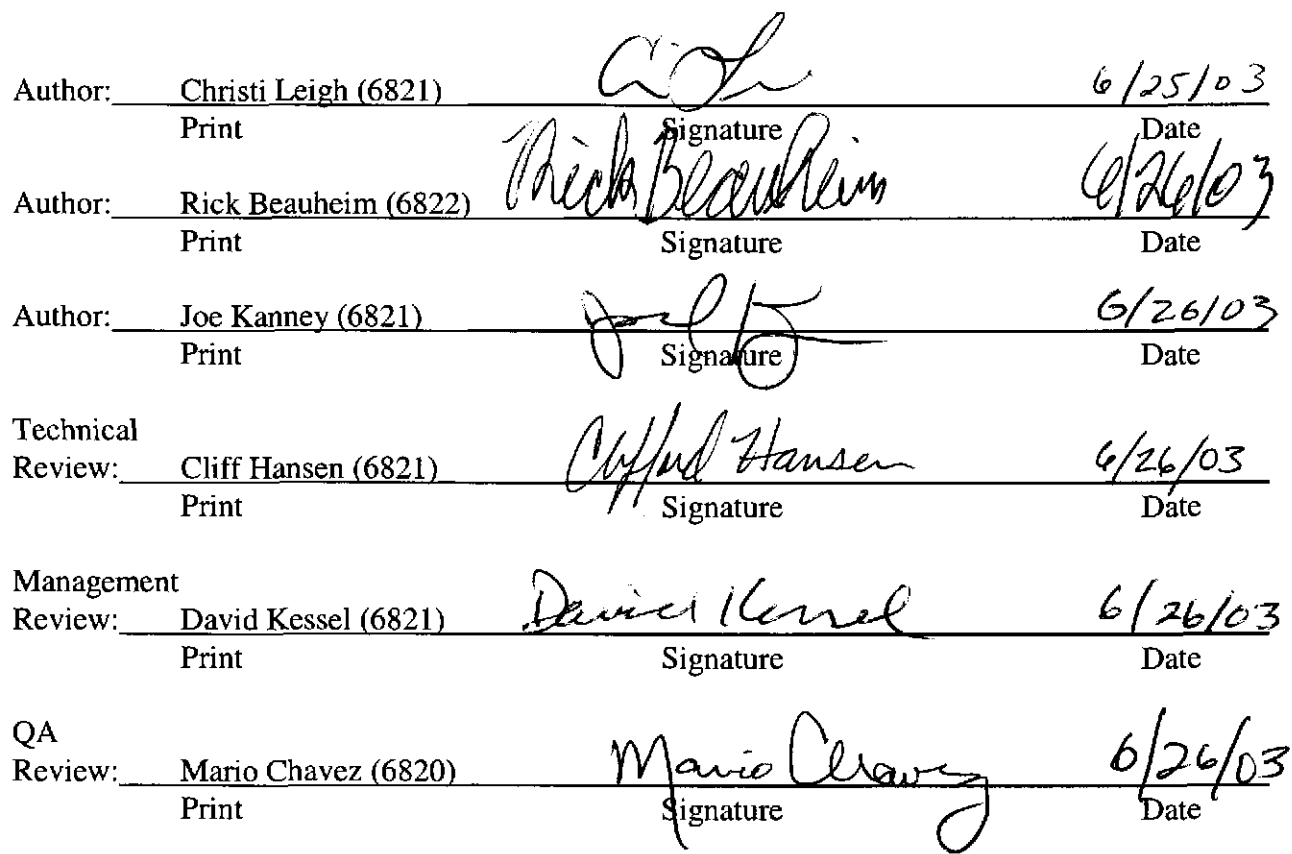 Author: Christi Leigh (6821) 6/25/03
Print Signature Date
Author: Rick Beauheim (6822) Rick Beauheim 6/26/03
Print Signature Date
Author: Joe Kanney (6821) 6/26/03
Print Signature Date
Technical
Review: Cliff Hansen (6821) Clifford Hansen 6/26/03
Print Signature Date
Management
Review: David Kessel (6821) David Kessel 6/26/03
Print Signature Date
QA
Review: Mario Chavez (6820) Mario Chavez 6/26/03
Print Signature Date